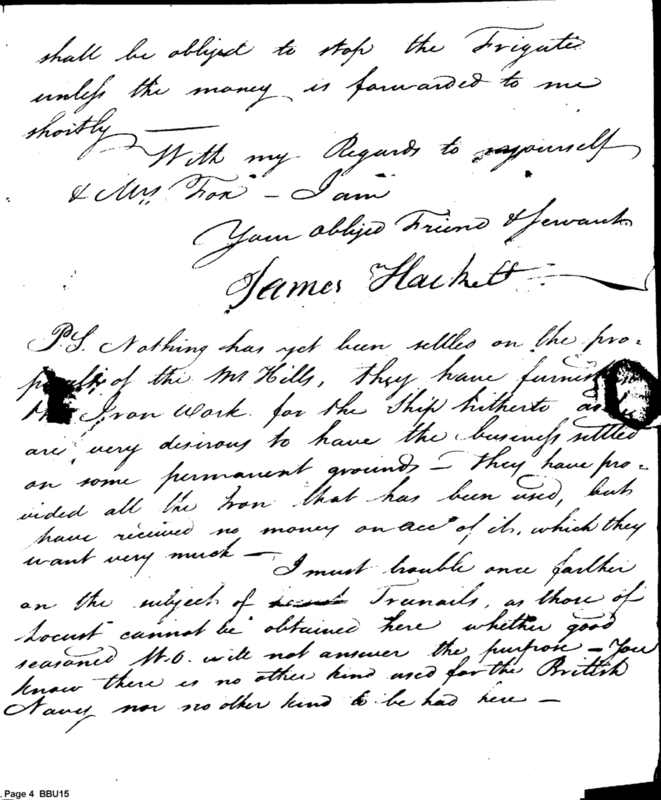 shall be obliged to stop the Frigate
unless the money is forwarded to me
shortly —
With my Regards to yourself
& Mrs. Fox — I am
Your obliged Friend & Servant
James Hackett
P.S. Nothing has yet been settled on the pro-
of the Mr Hills, they have
the Iron work for the Ship hitherto
are very desirous to have the business settled
on some permanent grounds — they have pro-
vided all the Iron that has been used, but
have received no money on acct of it, which they
want very much —
I must trouble once farther
on the subject of Trunails, as those of
Locust cannot be obtained here whether good
seasoned W.O. will not answer the purpose — You
know there is no other kind used for the British
Navy nor no other kind to be had here —
. Page 4 BBU15